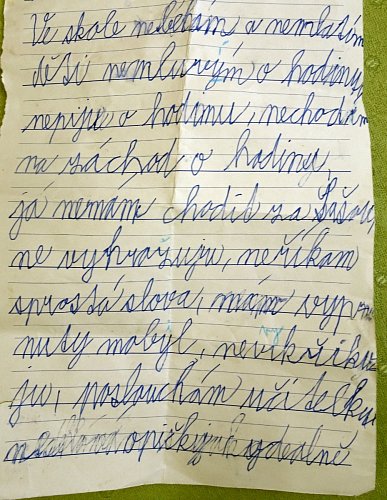 Ve skole neběhám a nemlatím
děti nemluvým o hodiny,
nepiju o hodinu, nechodám
na záchod o hodiny
já nemám chodit za Sášou,
ne vyhrožuju, neříkam
sprostá slova, mám vyp
nutý mobyl, nevikřiku
ju, poslouchám učitelku
opičky ydealně